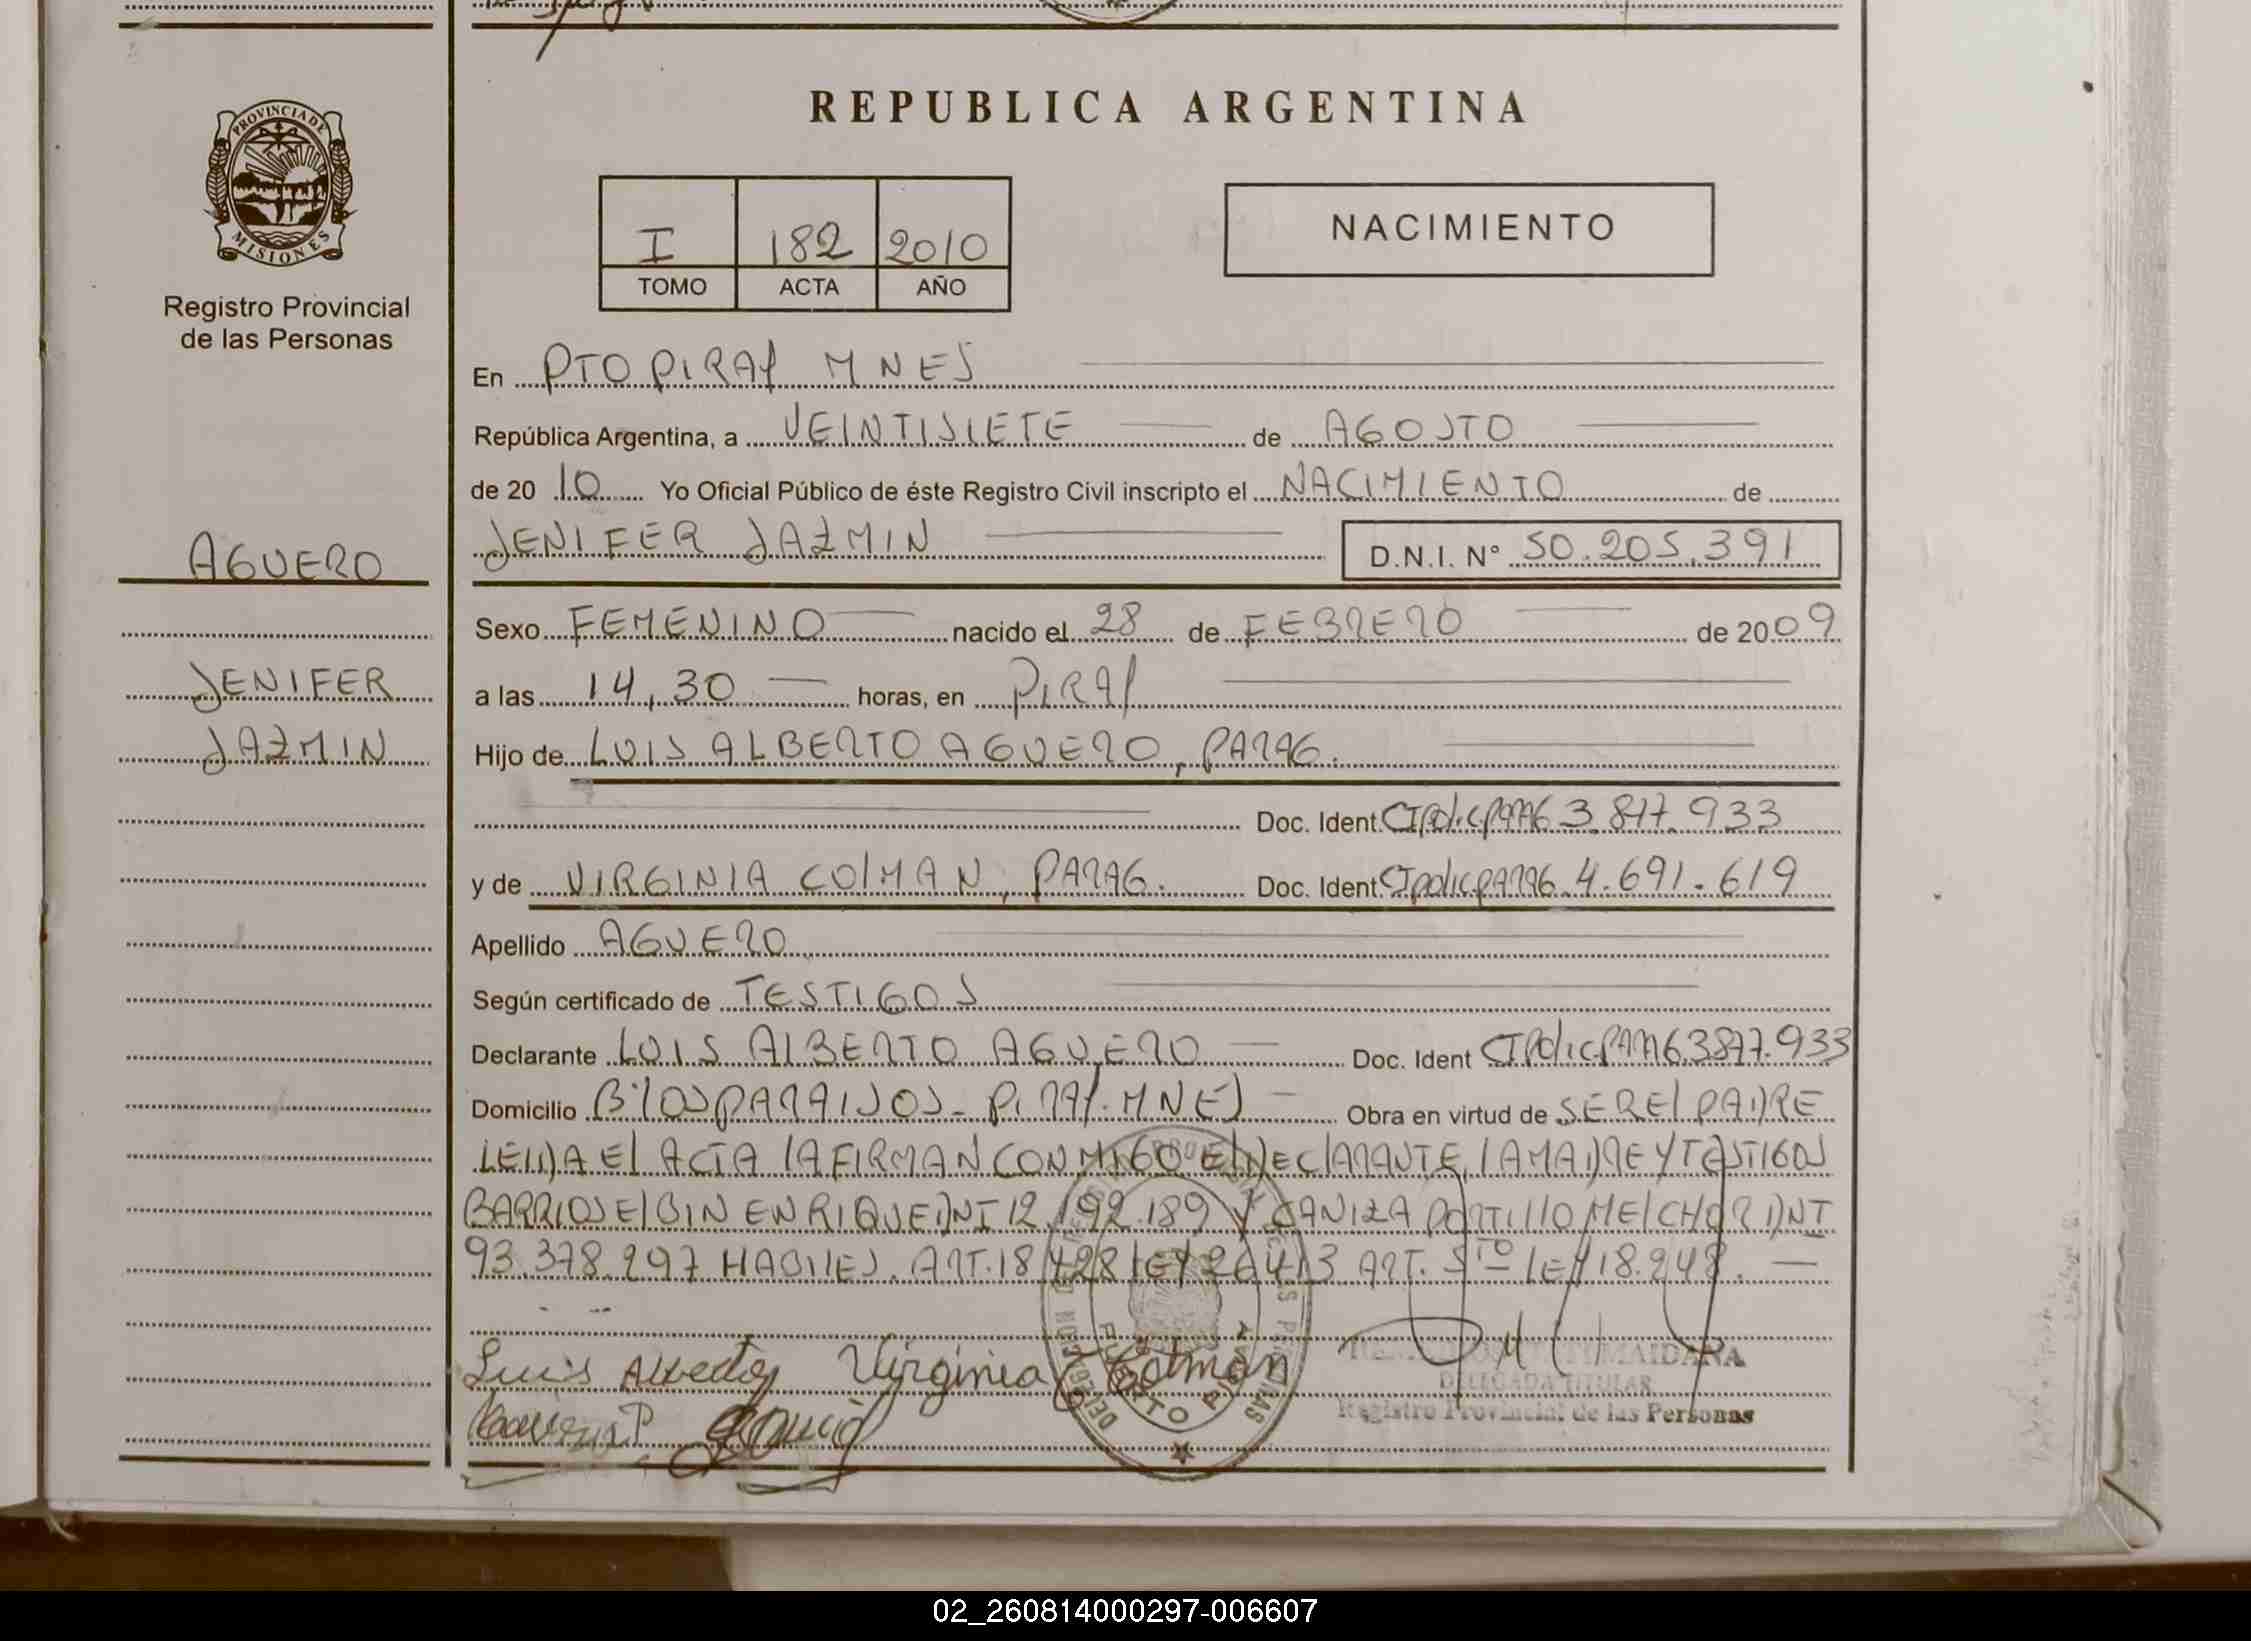 REPUBLICA ARGENTINA
PROVINCIA DE
MISIONES
Registro Provincial
de las Personas
I 182 2010
TOMO ACTA AÑO
NACIMIENTO
En PTO PIRAY MNES
República Argentina, a VEINTISIETE de AGOSTO
de 20 10 Yo Oficial Público de éste Registro Civil inscripto el NACIMIENTO de
JENIFER JAZMIN D.N.I. Nº 50.205.391
AGUERO
JENIFER
JAZMIN
Sexo FEMENINO nacido el 28 de FEBRERO de 2009
a las 14,30 horas, en PIRAY
Hijo de LUIS ALBERTO AGUERO, PARAG.
Doc. Ident. CIPolic.PARAG 3.877.933
y de VIRGINIA COLMAN, PARAG. Doc. Ident. CIpolic.PARAG. 4.691.619
Apellido AGUERO
Según certificado de TESTIGOS
Declarante LUIS ALBERTO AGUERO Doc. Ident CIPolic.PARAG.3877.933
Domicilio Bº LOS PARAISOS - PIRAY-MNES Obra en virtud de SER EL PADRE
LEIDA EL ACTA LA FIRMAN CONMIGO EL DECLARANTE, LA MADRE Y TESTIGOS
BARRIOS ELBIN ENRIQUE DNI 12.192.189 Y CANIZA PORTILLO MELCHOR DNI
93.378.297 HABILES. ART.18 Y 28 LEY 26413 ART. 5TO LEY 18.248.
Luis Alberto Virginia Colman
DELEGADA TITULAR
Registro Provincial de las Personas
PUERTO PIRAY
02_260814000297-006607